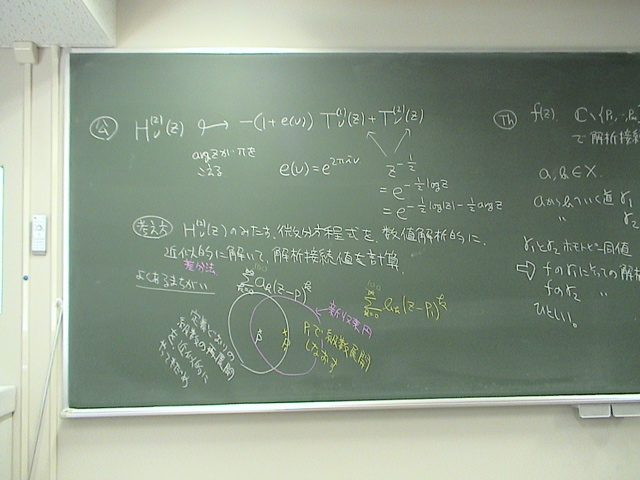 公 H_ν^{(2)}(z) → −(1+e(ν)) T_ν^{(1)}(z) + T_ν^{(2)}(z)
arg z が −π を
こえる
e(ν) = e^{2πiν}
z^{-1/2}
= e^{-1/2 log z}
= e^{-1/2 log|z| - 1/2 arg z}
考え方 H_ν^{(2)}(z) のみたす, 微分方程式を, 数値解析的に,
近似的に解いて, 解析接続値を計算.
差分法
よくあるまちがい
Σ_{k=0} a_k(z−p)^k
Σ_{k=0}^{∞} b_k(z−p_1)^k
新収束円
p_1 で級数展開
しなおす
定義どおりの
級数の再展開
を近似的に
p
p_1
Th f(z)
で解析接続
a, b ∈ X.
a から b へいく道 γ_1
〃 γ_2
γ_1 と γ_2 ホモトピー同値
⇒ f の γ_1 にそっての解析
f の γ_2 〃
ひとしい。